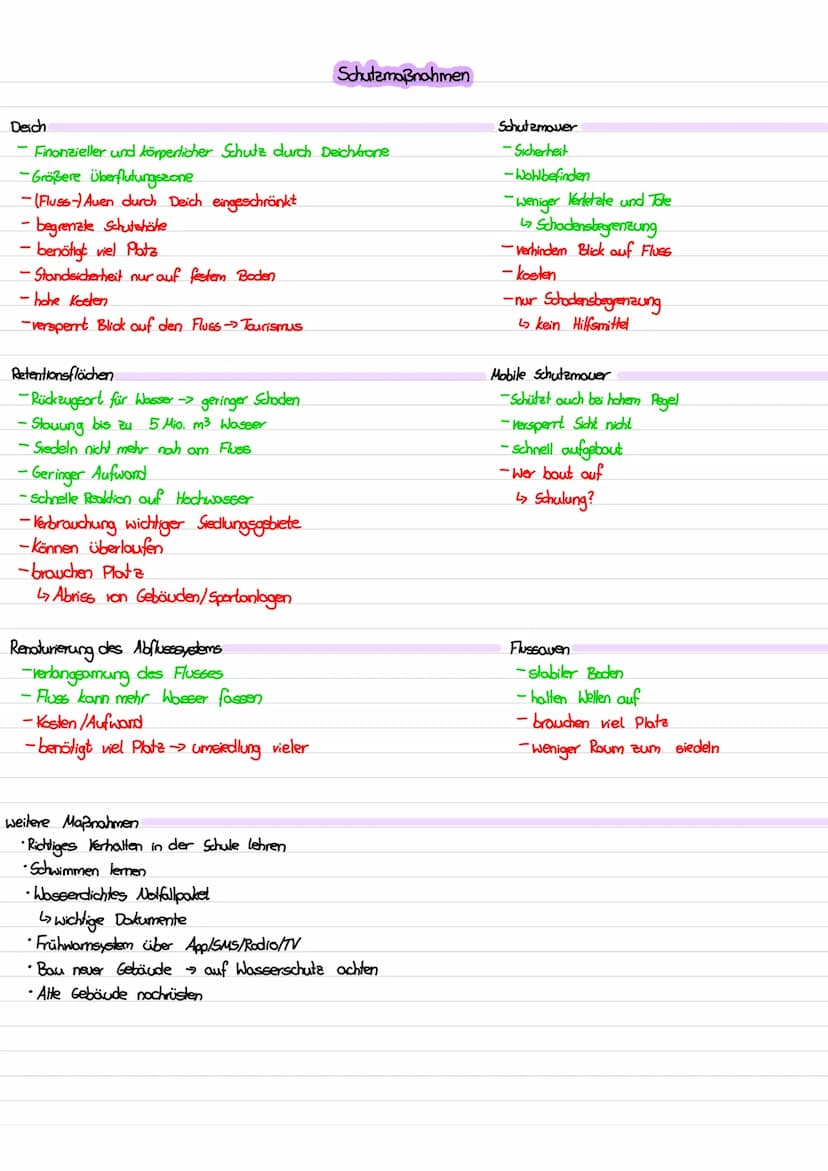 Schutzmaßnahmen
Deich
- Finanzieller und körperlicher Schutz durch Deichkrone
- Größere Überflutungszone
- (Fluss-) Auen durch Deich eingeschränkt
- begrenzte Schutzhöhe
- benötigt viel Platz
- Standsicherheit nur auf festem Boden
- hohe Kosten
- versperrt Blick auf den Fluss -> Tourismus
Schutzmauer
- Sicherheit
- Wohlbefinden
- weniger Verletzte und Tote
↳ Schadensbegrenzung
- verhindern Blick auf Fluss
- kosten
- nur Schadensbegrenzung
↳ kein Hilfsmittel
Retentionsflächen
- Rückzugsort für Wasser -> geringer Schaden
- Stauung bis zu 5 Mio. m³ Wasser
- Siedeln nicht mehr nah am Fluss
- Geringer Aufwand
- schnelle Reaktion auf Hochwasser
- Verbrauchung wichtiger Siedlungsgebiete
- können überlaufen
- brauchen Platz
↳ Abriss von Gebäuden/Sportanlagen
Mobile Schutzmauer
- Schützt auch bei hohem Pegel
- versperrt Sicht nicht
- schnell aufgebaut
- Wer baut auf
↳ Schulung?
Renaturierung des Abflusssystems
- verlangsamung des Flusses
- Fluss kann mehr Wasser fassen
- Kosten/Aufwand
- benötigt viel Platz -> umsiedlung vieler
Flussauen
- stabiler Boden
- halten Wellen auf
- brauchen viel Platz
- weniger Raum zum siedeln
weitere Maßnahmen
· Richtiges Verhalten in der Schule lehren
· Schwimmen lernen
· Wasserdichtes Notfallpaket
↳ wichtige Dokumente
· Frühwarnsystem über App/SMS/Radio/TV
· Bau neuer Gebäude -> auf Wasserschutz achten
· Alte Gebäude nachrüsten